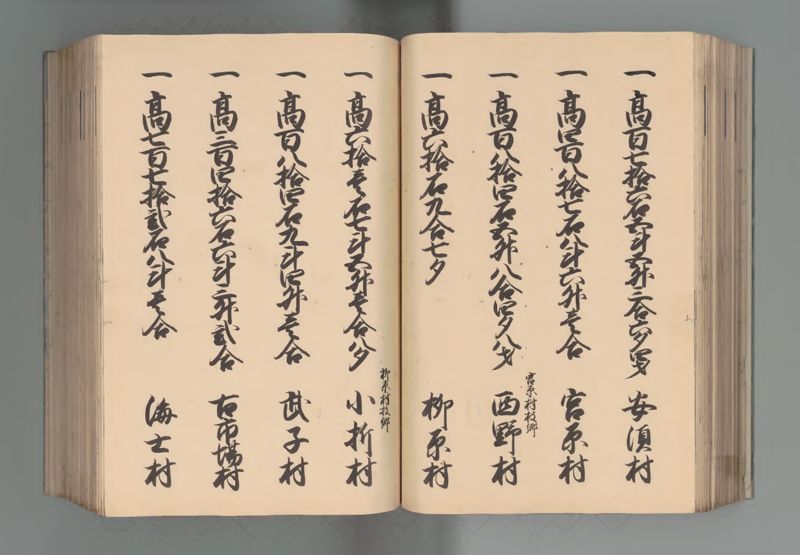 一 高百七拾六石五斗五升三合六夕四才 安須村
一 高四百八拾七石八斗六升壱合 宮原村
宮原村枝郷
一 高百八拾四石五升八合四夕八才 西野村
一 高六拾石九合七夕 柳原村
柳原村枝郷
一 高六拾壱石七斗五升壱合八夕 小折村
一 高百八拾四石九斗四升壱合 武子村
一 高三百四拾六石六斗三升弐合 古市場村
一 高七百七拾弐石八斗壱合 海士村